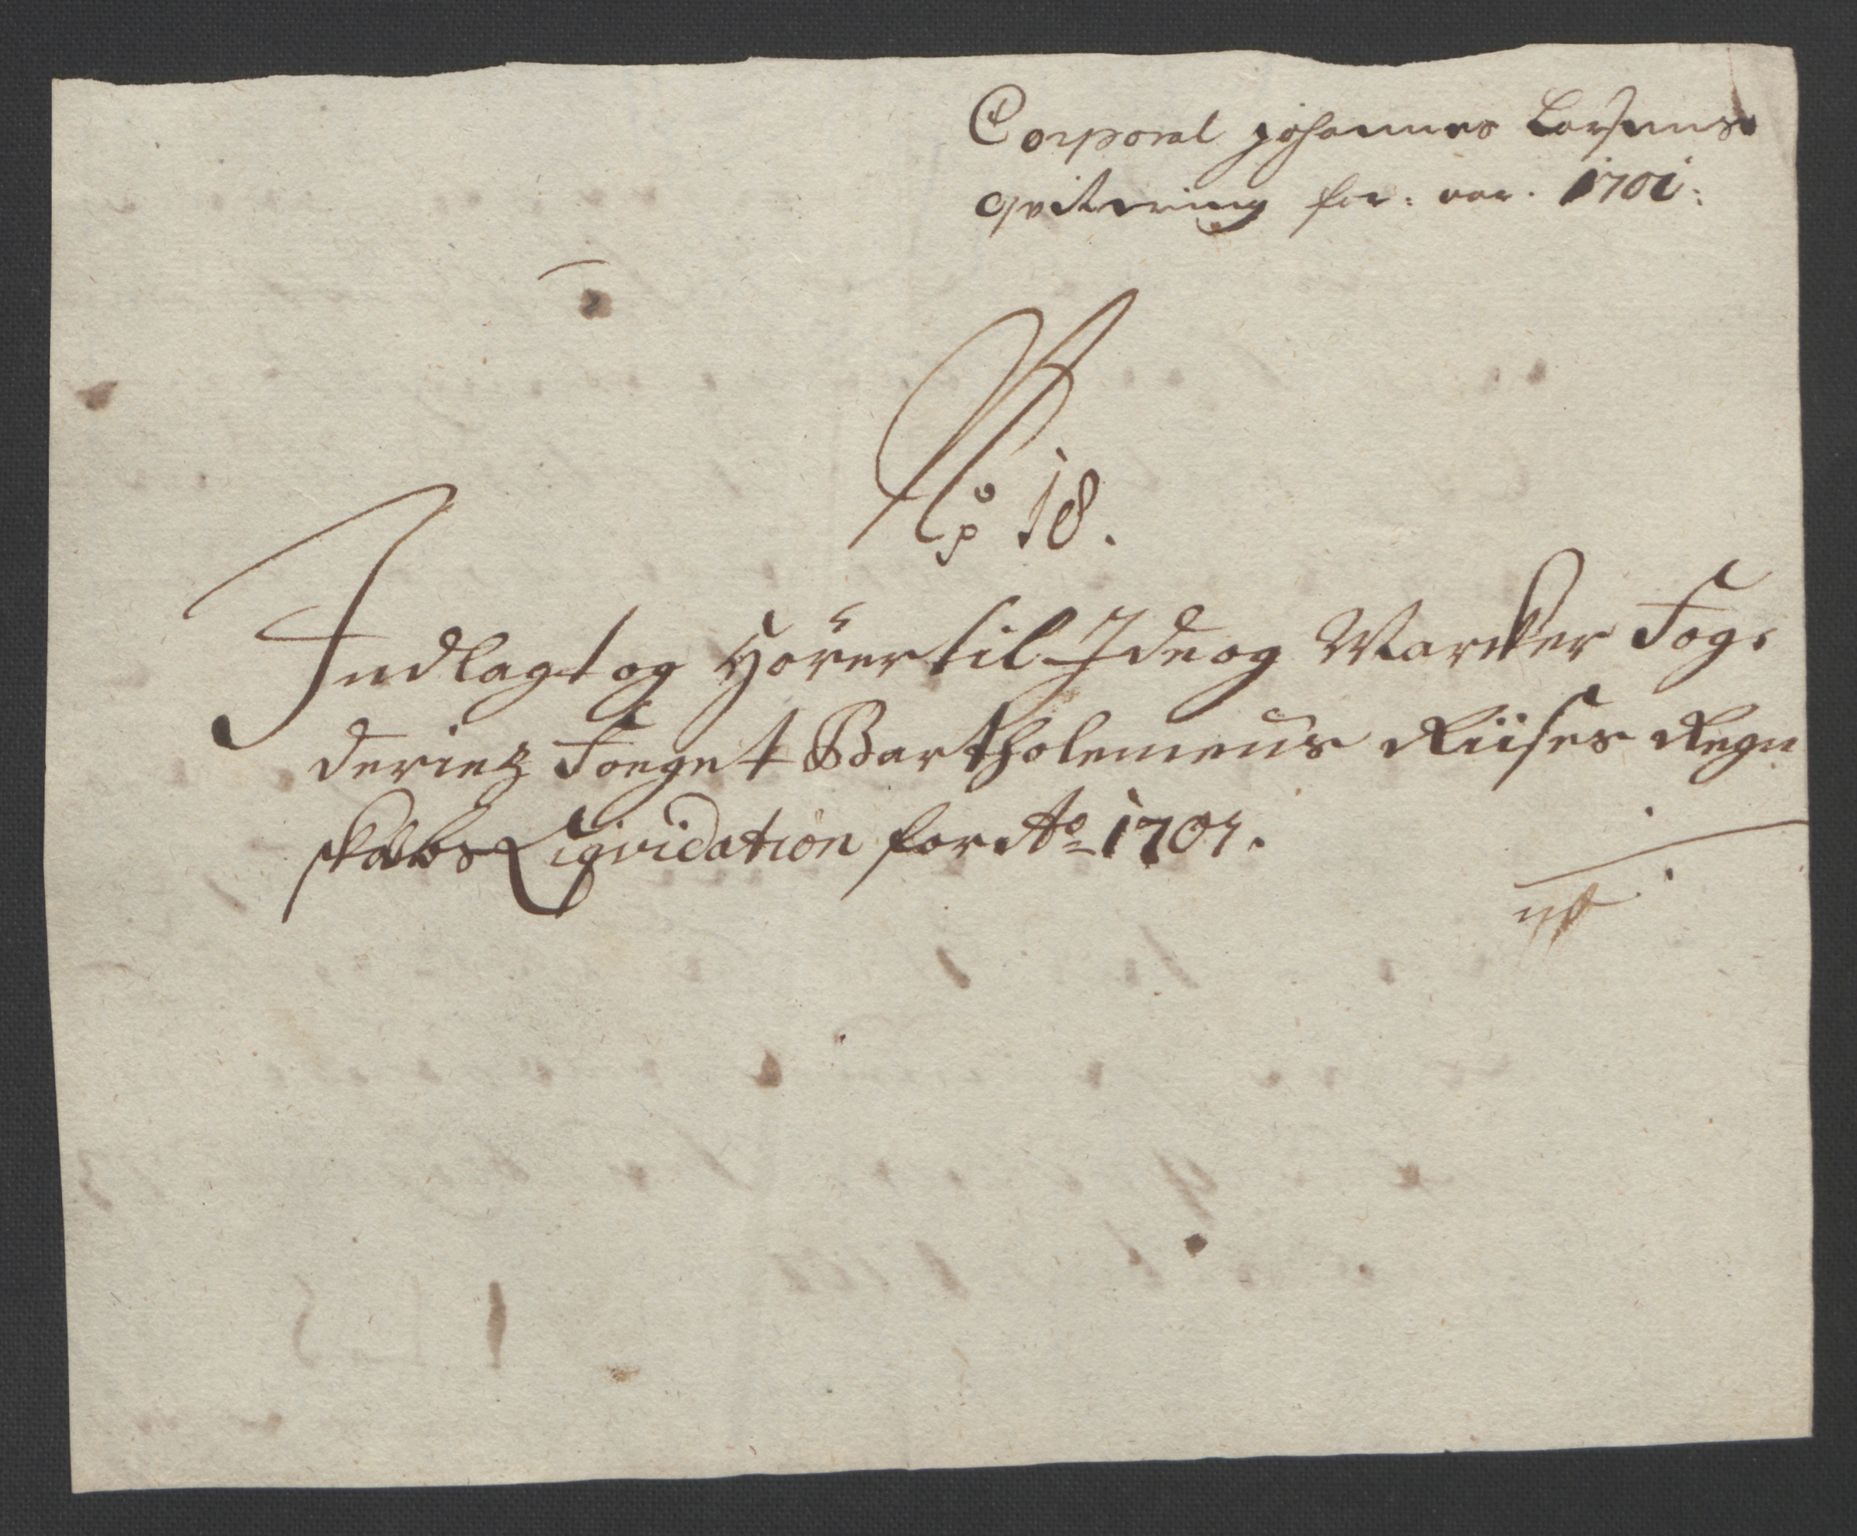 Corporal Johannes Larsens
qvitering for: aar. 1701:
No 18.
Indlagt og Hörer til Ide og Marcker Fog-
deriez Foeget Bartholemeus Riises Regn
skabs Liqvidation for Ao 1701.